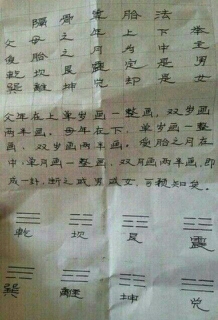 隔骨算胎法
父母之年上下拳
受胎之月為中主
乾坎艮震定是男
巽離坤兌却是女
父年在上单岁画一整画,双岁画
两半画。母年在下,单岁画一整
画,双岁画两半画。受胎之月在
中,单月画一整画,双月画两半画,即
成一卦,断之或男或女,可预知矣。
乾 坎 艮 震
巽 離 坤 兑